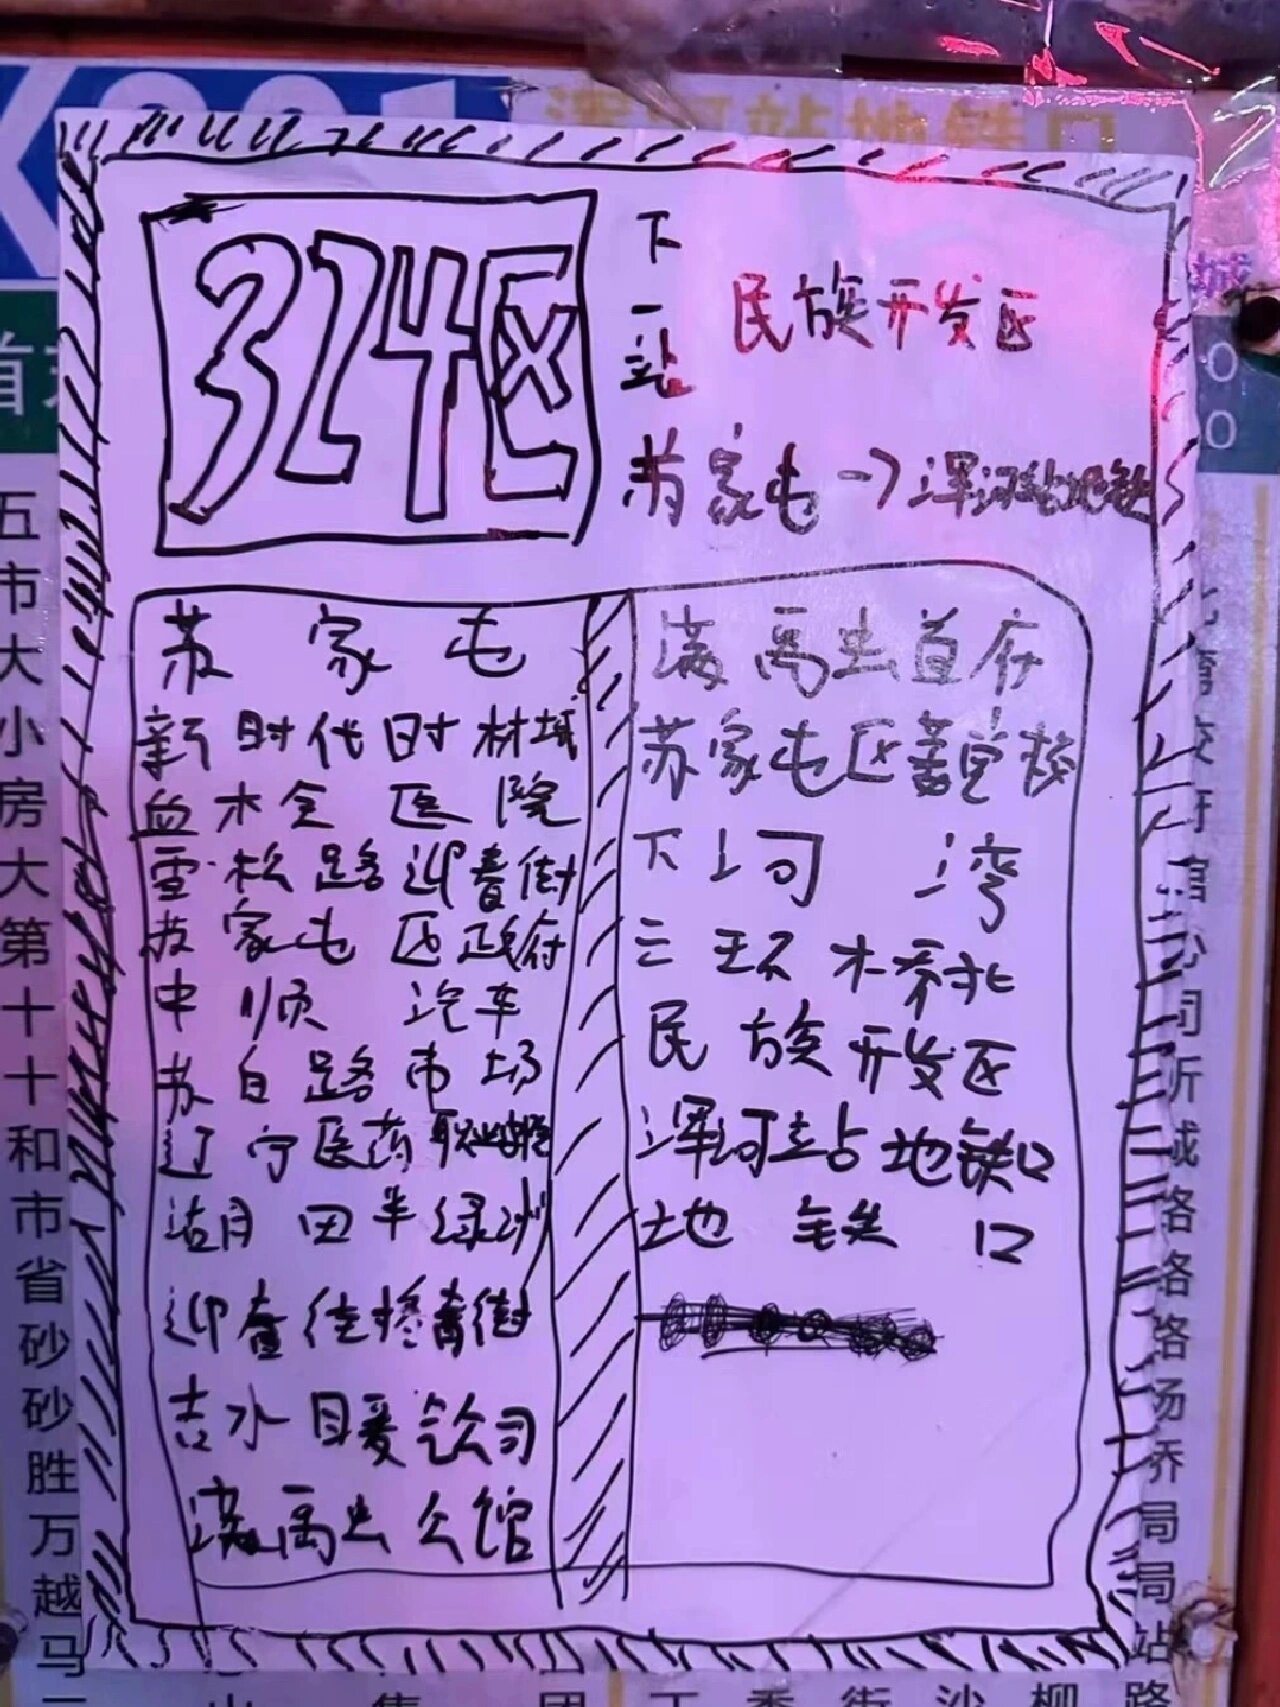 324区
下一站
民族开发区
苏家屯→浑河站地铁
苏家屯
新时代时材城
血木仝医院
雪松路迎春街
苏家屯区政府
中顺汽车
苏白路市场
辽宁医药职业
湖月田半绿洲
迎春街
吉水日暖公司
公馆
首府
苏家屯区党校
下河湾
三环木乔北
民族开发区
浑河站地铁口
地铁口
五
市
大
小
房
大
第
十
十
和
市
省
砂
砂
胜
万
越
马